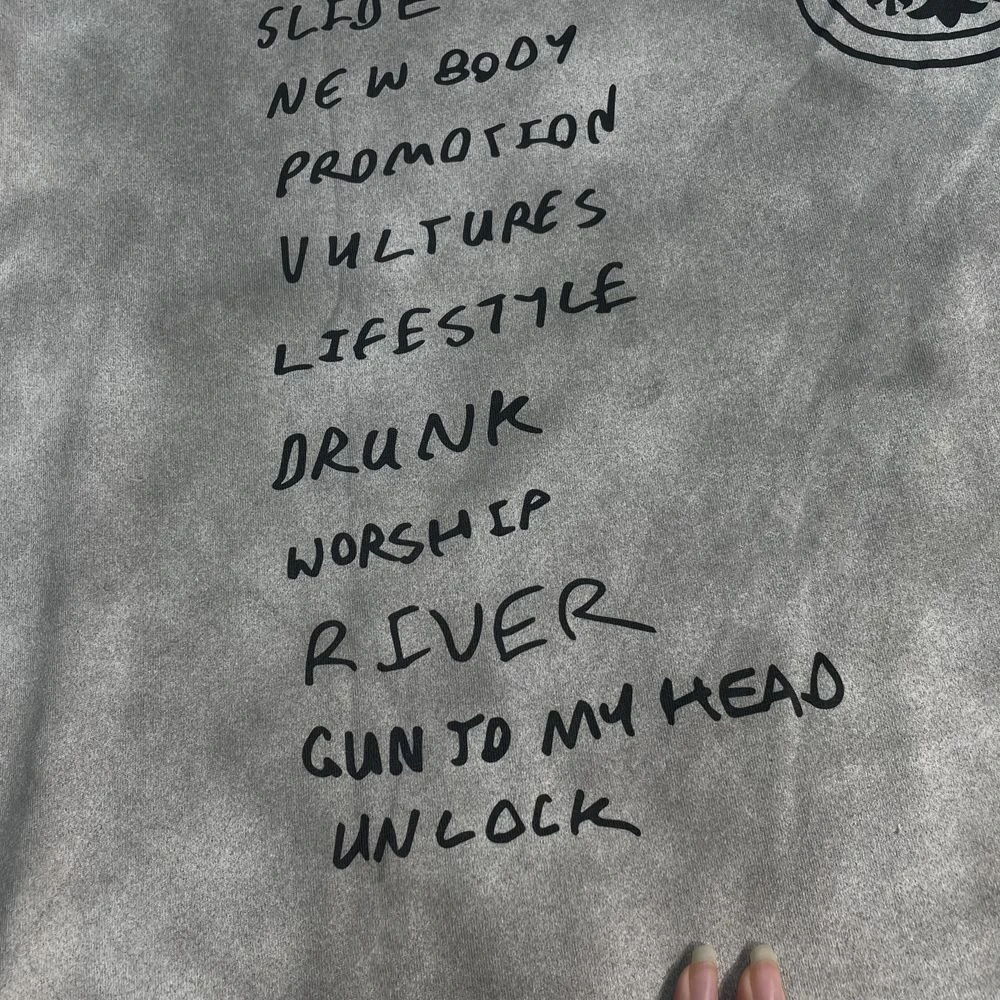 SLIDE
NEW BODY
PROMOTION
VULTURES
LIFESTYLE
DRUNK
WORSHIP
RIVER
GUN TO MY HEAD
UNLOCK